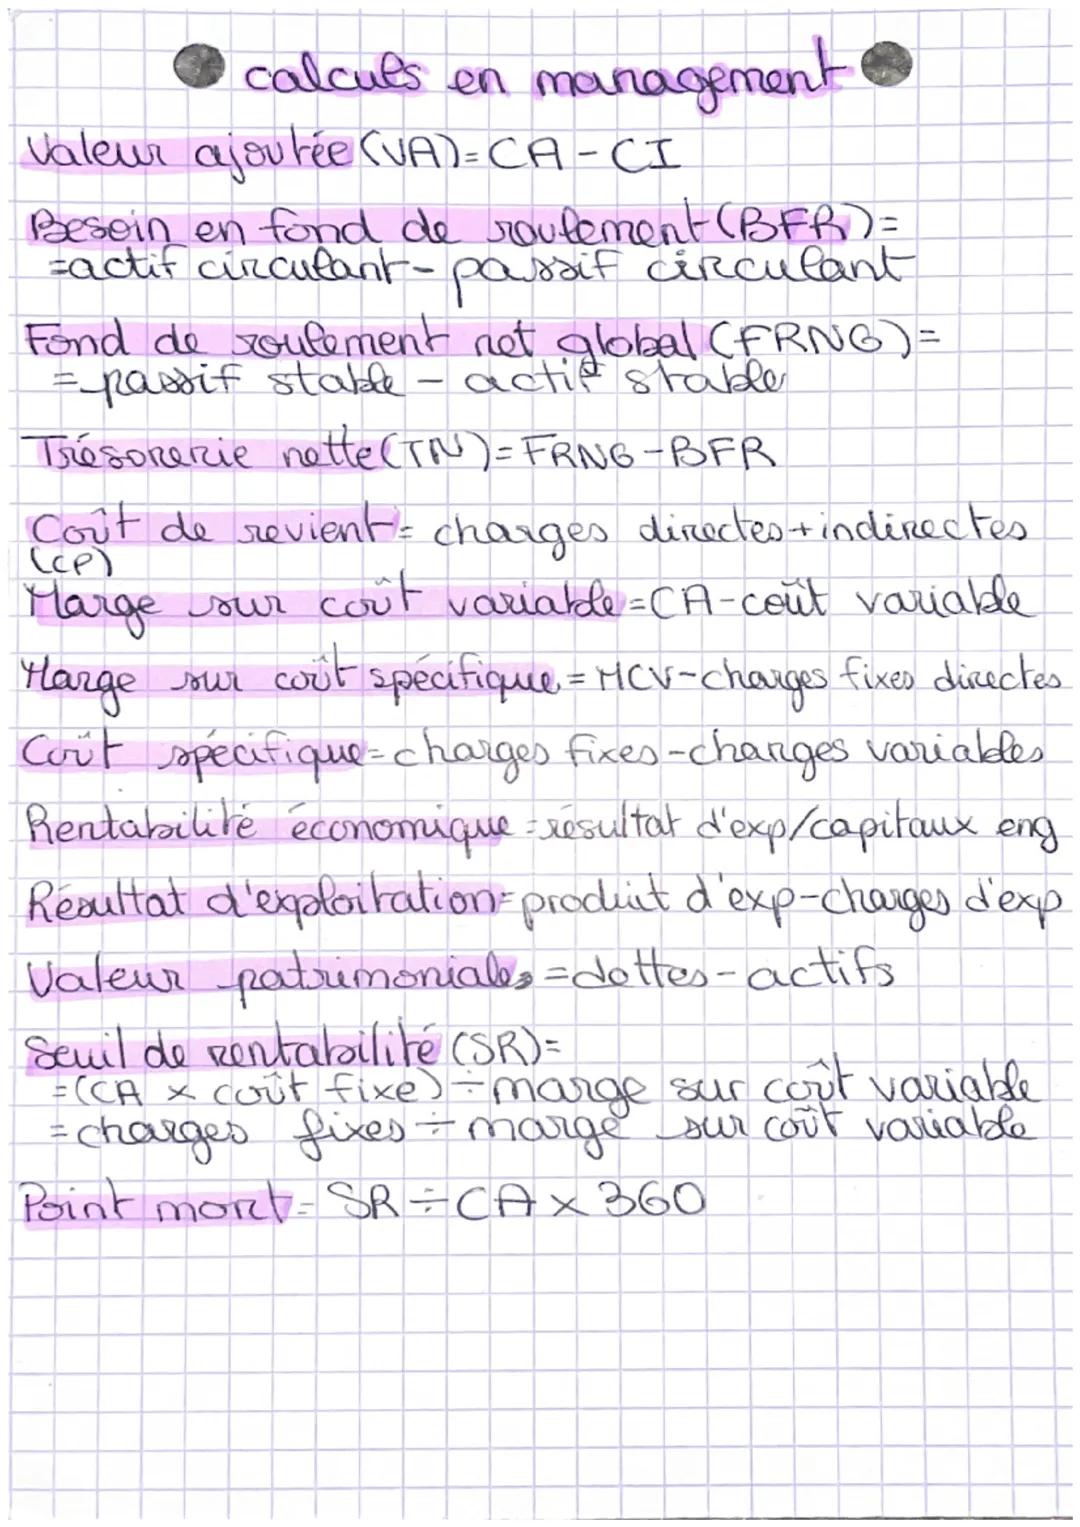 calculs en management
Valeur ajoutée (VA)= CA - CI
Besoin en fond de roulement (BFR)=
=actif circulant - passif circulant
Fond de roulement net global (FRNG)=
= passif stable - actif stable
Trésorerie nette (TN)= FRNG - BFR
Coût de revient = charges directes + indirectes
(CP)
Marge sur coût variable = CA - coût variable
Marge sur coût spécifique = MCV - charges fixes directes
Coût spécifique = charges fixes - charges variables
Rentabilité économique = résultat d'exp/capitaux eng
Résultat d'exploitation = produit d'exp - charges d'exp
Valeur patrimoniale = dettes - actifs
Seuil de rentabilité (SR)=
=(CA x coût fixe) ÷ marge sur coût variable
= charges fixes ÷ marge sur coût variable
Point mort = SR ÷ CA x 360